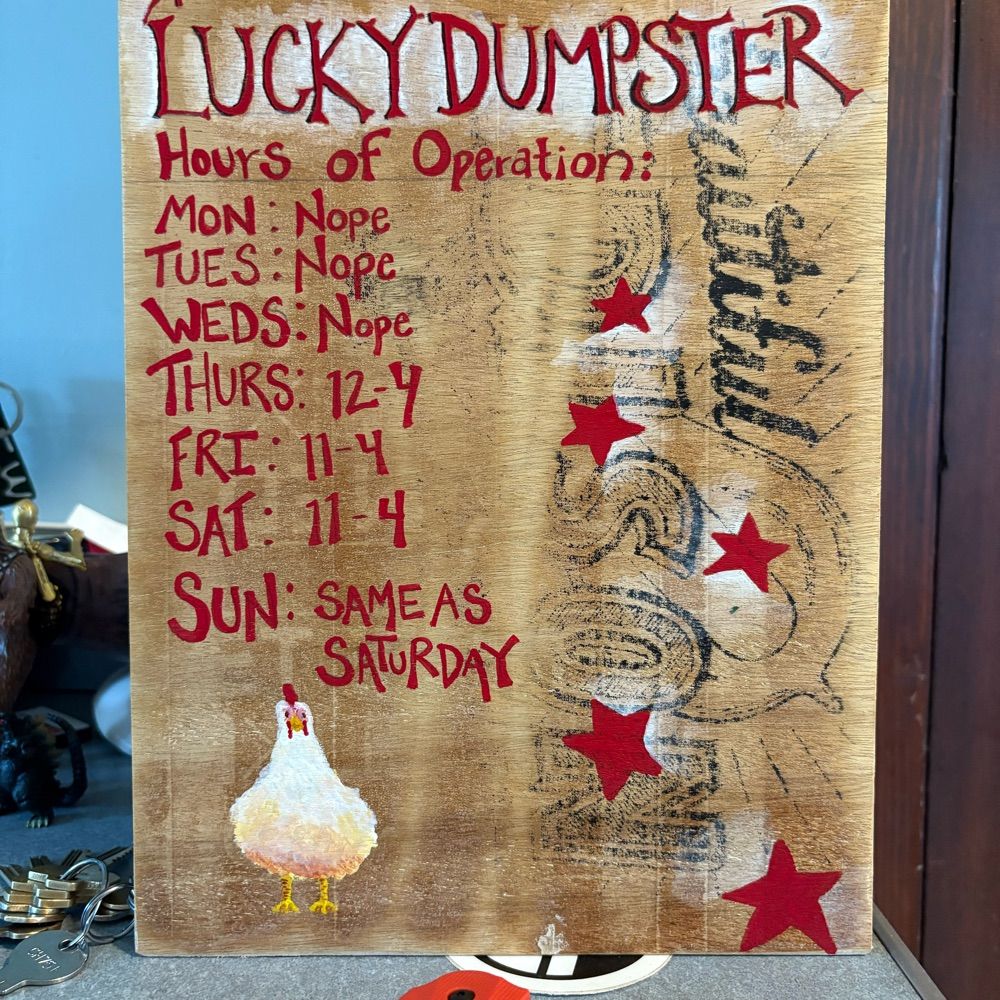 LUCKY DUMPSTER
Hours of Operation:
MON: Nope
TUES: Nope
WEDS: Nope
THURS: 12-4
FRI: 11-4
SAT: 11-4
SUN: SAME AS
SATURDAY